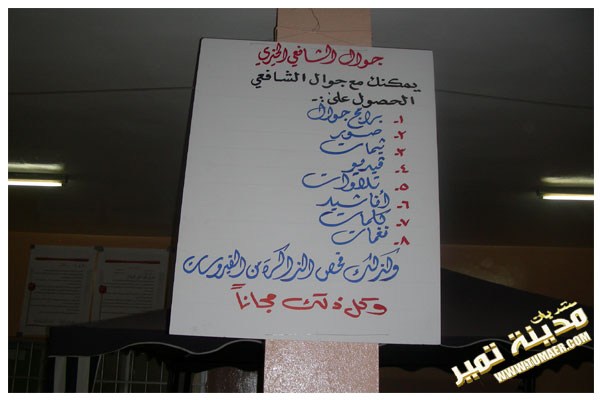 جوال الشافعي الخيري
يمكنك مع جوال الشافعي
الحصول على :-
١- برامج جوال
٢- صور
٣- ثيمات
٤- فيديو
٥- تلاوات
٦- أناشيد
٧- كلمات
٨- نغمات
وكذلك فحص الذاكرة من الفيروسات
وكل ذلك مجاناً
منتديات
مدينة تمير
WWW.TUMAER.COM